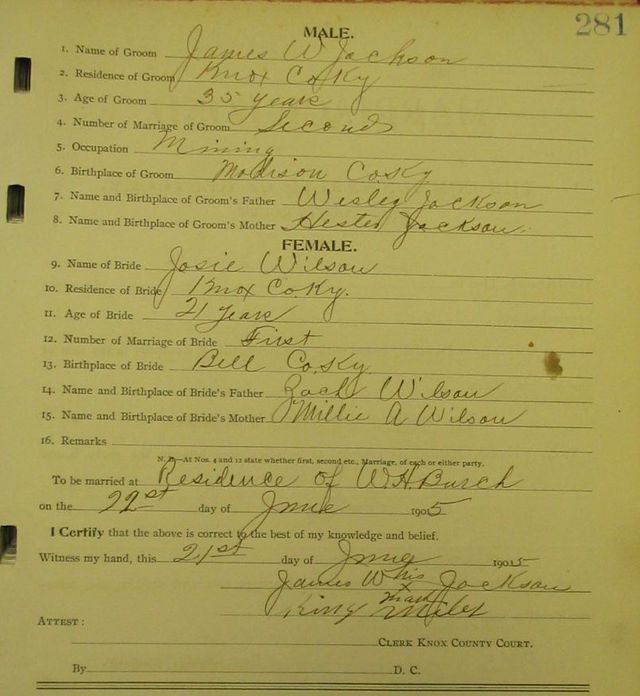 281
MALE.
1. Name of Groom James W Jackson
2. Residence of Groom Knox Co Ky
3. Age of Groom 35 years
4. Number of Marriage of Groom Second
5. Occupation Mining
6. Birthplace of Groom Madison Co Ky
7. Name and Birthplace of Groom's Father Wesley Jackson
8. Name and Birthplace of Groom's Mother Hester Jackson.
FEMALE.
9. Name of Bride Josie Wilson
10. Residence of Bride Knox Co. Ky.
11. Age of Bride 21 years
12. Number of Marriage of Bride First
13. Birthplace of Bride Bell Co. Ky
14. Name and Birthplace of Bride's Father Zach Wilson
15. Name and Birthplace of Bride's Mother Millie A Wilson
16. Remarks
N. B.—At Nos. 4 and 12 state whether first, second etc., Marriage, of each or either party.
To be married at Residence of W. H. Burch
on the 22st day of June 1905
I Certify that the above is correct to the best of my knowledge and belief.
Witness my hand, this 21st day of June 1905
James W his x mark Jackson
King
ATTEST:
CLERK KNOX COUNTY COURT.
By D. C.